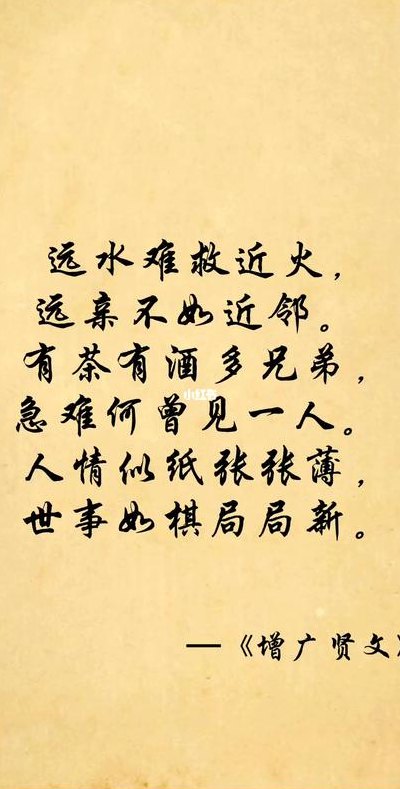 远水难救近火，
远亲不如近邻。
有茶有酒多兄弟，
小红书
急难何曾见一人。
人情似纸张张薄，
世事如棋局局新。
—《增广贤文》